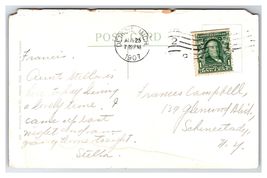 POST CARD
AUG 23
7-30 PM
1907
Francis,
Aunt Stella is
having
a lovely time. I
came up last
night and am
going home tonight.
Stella
Frances Campbell,
139 Glenwood Blvd,
Schenectady,
N.Y.